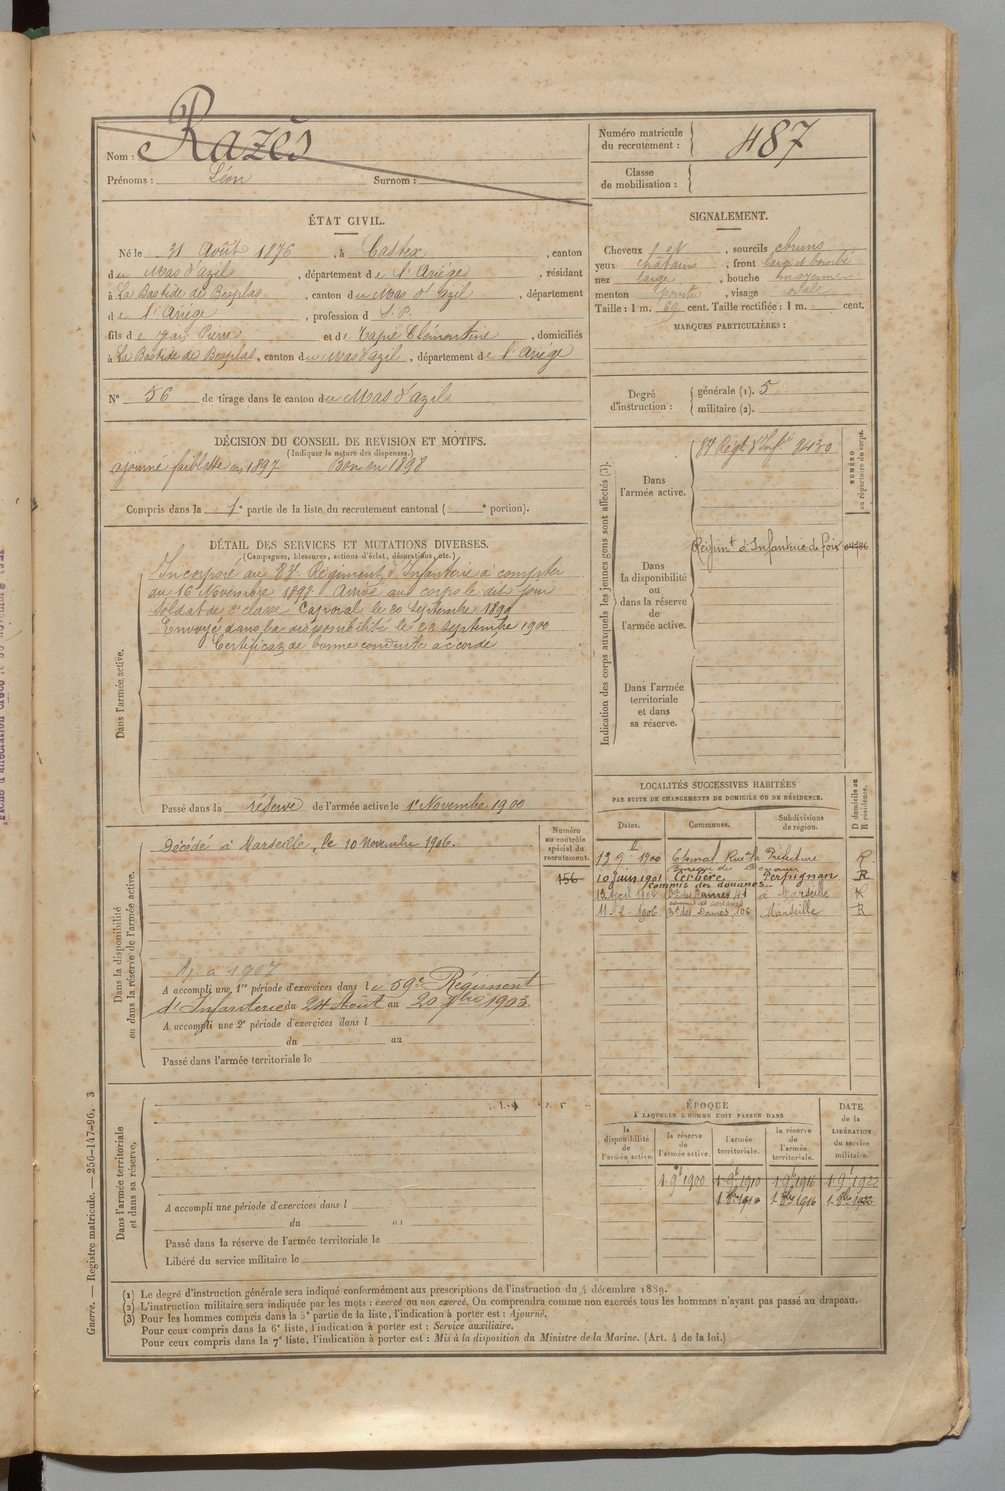 Nom : Razès
Prénoms : Léon Surnom :
Numéro matricule du recrutement : 487
Classe de mobilisation :
ÉTAT CIVIL.
Né le 31 Août 1876, à Castex, canton
du Mas d'azil, département de l'Ariège, résidant
à La Bastide de Besplas, canton du Mas d'Azil, département
de l'Ariège, profession d S.P.
fils de Jean Pierre et de Tapié Clémentine, domiciliés
à La Bastide de Besplas, canton du Mas d'azil, département de l'Ariège
N° 56 de tirage dans le canton du Mas d'azil
SIGNALEMENT.
Cheveux et, sourcils bruns
yeux châtains, front large et bombé
nez large, bouche moyenne
menton pointu, visage ovale
Taille : 1 m. 69 cent. Taille rectifiée : 1 m. cent.
MARQUES PARTICULIÈRES :
Degré d'instruction : générale (1). 5
militaire (2).
DÉCISION DU CONSEIL DE REVISION ET MOTIFS.
(Indiquer la nature des dispenses.)
ajourné faiblesse en 1897 Bon en 1898
Compris dans la 1e partie de la liste du recrutement cantonal ( e portion).
DÉTAIL DES SERVICES ET MUTATIONS DIVERSES.
(Campagnes, blessures, actions d'éclat, décorations, etc.)
Dans l'armée active.
Incorporé au Régiment d'Infanterie à compter
du 16 Novembre 1897 Arrivé au corps le dit jour
soldat de 2e classe Caporal le 20 septembre 1899
Envoyé dans la disponibilité le 23 septembre 1900
Certificat de bonne conduite accordé
Passé dans la réserve de l'armée active le 1er Novembre 1900
Indication des corps auxquels les jeunes gens sont affectés (3).
NUMÉRO au répertoire du corps.
Dans l'armée active.
Régt d'Infie 3430
Dans la disponibilité ou dans la réserve de l'armée active.
Régimt d'Infanterie de foix
Dans l'armée territoriale et dans sa réserve.
Dans la disponibilité ou dans la réserve de l'armée active.
Décédé à Marseille, le 10 Novembre 1906.
Numéro au contrôle spécial du recrutement.
156
A accompli une 1re période d'exercices dans le 59e Régiment
d'Infanterie du 24 Août au 20 7bre 1903
A accompli une 2e période d'exercices dans l
du au
Passé dans l'armée territoriale le
LOCALITÉS SUCCESSIVES HABITÉES
PAR SUITE DE CHANGEMENTS DE DOMICILE OU DE RÉSIDENCE.
Dates. Communes. Subdivisions de région. D domicile ou R résidence.
1900 Epinal Rue la Préfecture R
10 Juin 1901 Cerbère Perpignan R
commis des douanes
Bd des Dames 41 à Marseille R
1906 Bd des Dames 106 Marseille R
Dans l'armée territoriale et dans sa réserve.
A accompli une période d'exercices dans l
du au
Passé dans la réserve de l'armée territoriale le
Libéré du service militaire le
ÉPOQUE
À LAQUELLE L'HOMME DOIT PASSER DANS
la disponibilité de l'armée active. la réserve de l'armée active. l'armée territoriale. la réserve de l'armée territoriale. DATE de la LIBÉRATION du service militaire.
1 9bre 1900 1 9bre 1910 1 9bre 1916 1 9bre 1922
1 8bre 1910 1 8bre 1916 1 8bre 1922
(1) Le degré d'instruction générale sera indiqué conformément aux prescriptions de l'instruction du 4 décembre 1889.
(2) L'instruction militaire sera indiquée par les mots : exercé ou non exercé. On comprendra comme non exercés tous les hommes n'ayant pas passé au drapeau.
(3) Pour les hommes compris dans la 5e partie de la liste, l'indication à porter est : Ajourné.
Pour ceux compris dans la 6e liste, l'indication à porter est : Service auxiliaire.
Pour ceux compris dans la 7e liste, l'indication à porter est : Mis à la disposition du Ministre de la Marine. (Art. 4 de la loi.)
Guerre. — Registre matricule. — 256-147-96. 3